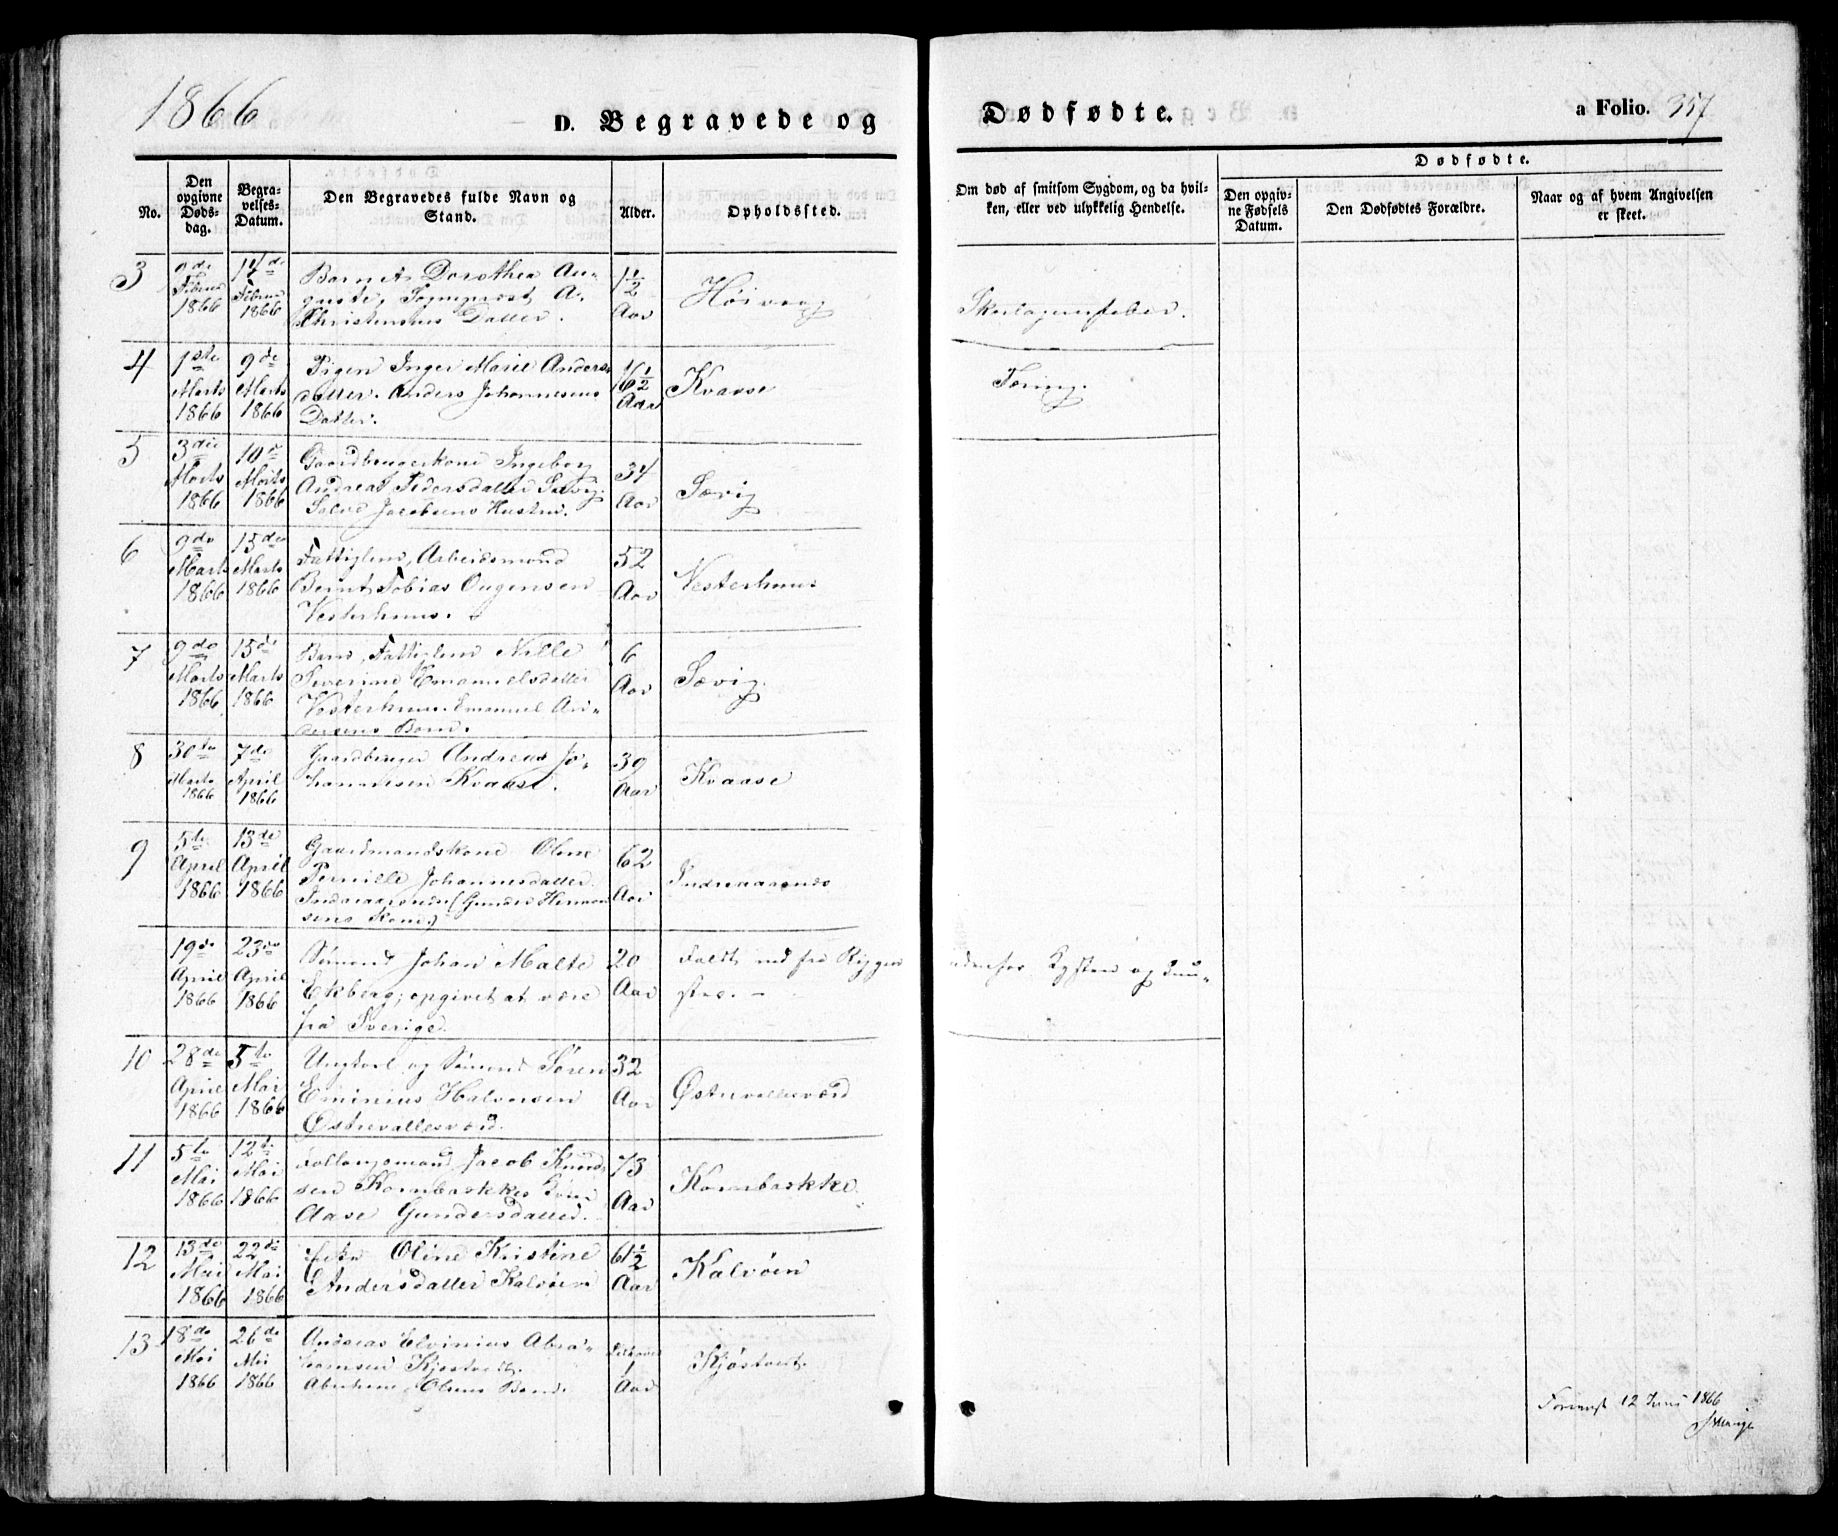 1866
D. Begravede og Dødfødte.
a Folio. 357
No.
Den opgivne Døds-dag.
Begra-velses-Datum.
Den Begravedes fulde Navn og Stand.
Alder.
Opholdssted.
Om død af smitsom Sygdom, og da hvil-
ken, eller ved ulykkelig Hendelse.
Dødfødte.
Den opgiv-ne Fødsels Datum.
Den Dødfødtes Forældre.
Naar og af hvem Angivelsen er skeet.
3 9de Februar 1866 17de Februar 1866
Barnet Dorothea Au-
guste, Sognprest A.
Christensens Datter.
1½ Aar
Høivaag
Skarlagensfeber.
4 1ste Marts 1866 9de Marts 1866
Pigen Inger Marie Anders
datter. Anders Johannesens
Datter.
16½ Aar
Kvaase
Tæring.
5 3die Marts 1866 10de Marts 1866
Gaardbrugerkone Ingeborg
Andrea Pedersdatter Sævig
Salve Jacobsens Hustru.
34 Aar
Sævig
6 9de Marts 1866 15de Marts 1866
Fattiglem, Arbeidsmand
Bernt Tobias Ougensen
Vesterhuus.
52 Aar
Vesterhuus
7 9de Marts 1866 15de Marts 1866
Barn, Fattiglem Nille
Severine Emanuelsdatter
Vesterhuus. Emanuel An-
dersens Barn.
6 Aar
Sævig.
8 30te Marts 1866 7de April 1866
Gaardbruger Andreas Jo-
hannesen Kvaase.
39 Aar
Kvaase
9 5te April 1866 13de April 1866
Gaardmandskone Oline
Pernille Johannesdatter
(Gunder Herman
sens Kone)
62 Aar
19de April 1866 23de April 1866
Sømand Johan Malte
Ekberg; opgivet at være
fra Sverige.
20 Aar
Faldt ned fra Rygen
udenfor Kysten og
10 28de April 1866 5te Mai 1866
Ungkarl og Sømand Søren
Eminius Halvorsen
Østrevallesværd.
32 Aar
Østrevallesværd
11 5te Mai 1866 12te Mai 1866
Jacob Knud
sen Kornbrække
Aase Gundersdatter.
73 Aar
Kornbrække.
12 13de Mai 1866 22de Mai 1866
Enke Oline Kristine
Andersdatter Kalvøen
61½ Aar
Kalvøen
13 18de Mai 1866 26de Mai 1866
Andreas Elvinius Abra-
hamsen Kjøstvedt.
Abraham Olsens Barn.
1 Aar
Kjøstvedt.
12 Juni 1866